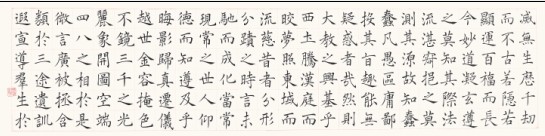 滅無生歷千劫
而不古若隱若
顯運百福而長
今妙道凝玄遵
之莫知其際法
流湛寂挹之莫
測其源故知蠢
蠢凡愚區區庸鄙
投其旨趣能無
疑惑者哉然則
大教之興基乎
西土騰漢庭而
皎夢照東域而
流慈昔者分形
分蹟之時言未
馳而成化當常
現常之世人仰
德而知遵及乎
晦影歸真遷儀
越世金容掩色
不鏡三千之光
麗象開圖空端
四八之相於是
微言廣被拯含
類於三途遺訓
遐宣導羣生於